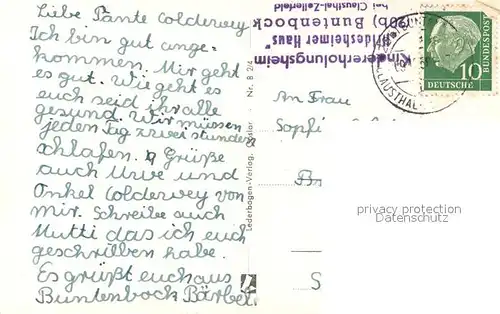 Liebe Tante Colderwey
Ich bin gut ange-
kommen. Mir geht
es gut. Wie geht es
euch seid ihr alle
gesund. Wir müssen
jeden Tag zwei stunden
schlafen. Grüße
auch Uwe und
Onkel Colderwey von
mir. Schreibe auch
Mutti das ich euch
geschrilben habe.
Es grüßt euch aus
Buntenbock Bärbel
Lederbogen-Verlag,
Nr. B 2/4
Kindererholungsheim
"Hildesheimer Haus"
(20b) Buntenbock
bei Clausthal-Zellerfeld
CLAUSTHAL-
DEUTSCHE
BUNDESPOST
10
An Frau
Sopfi
B
S
privacy protection
Datenschutz